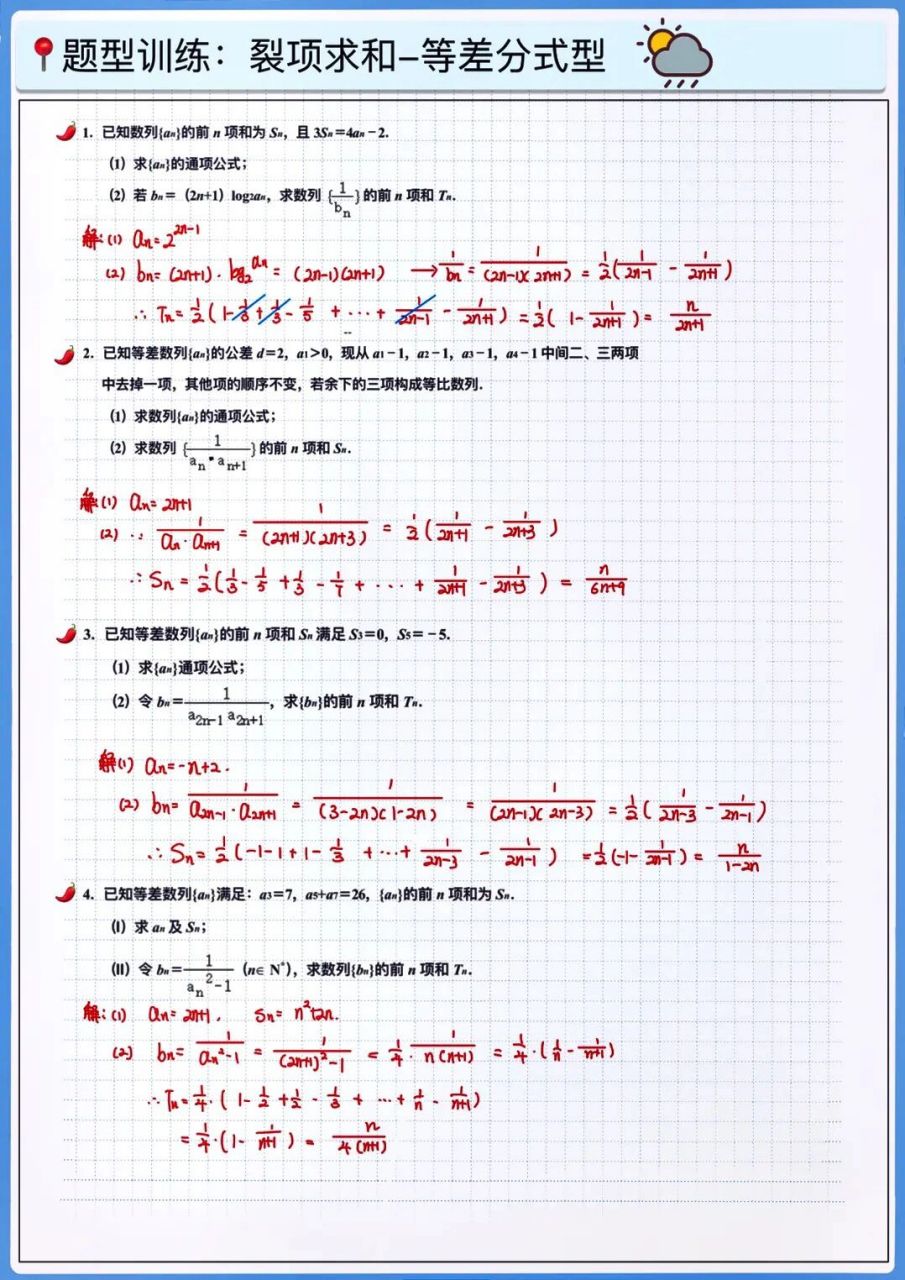 题型训练：裂项求和-等差分式型
1. 已知数列{aₙ}的前 n 项和为 Sₙ，且 3Sₙ=4aₙ-2.
(1) 求{aₙ}的通项公式；
(2) 若 bₙ=（2n+1）log₂aₙ，求数列 {1/bₙ} 的前 n 项和 Tₙ.
解:(1) aₙ=2^(2n-1)
(2) bₙ=(2n+1)·log₂^aₙ=(2n-1)(2n+1) → 1/bₙ=1/((2n-1)(2n+1))=1/2(1/(2n-1) - 1/(2n+1))
∴Tₙ=1/2(1-1/3+1/3-1/5+···+1/(2n-1)-1/(2n+1))=1/2(1-1/(2n+1))=n/(2n+1)
2. 已知等差数列{aₙ}的公差 d=2，a₁>0，现从 a₁-1，a₂-1，a₃-1，a₄-1 中间二、三两项
中去掉一项，其他项的顺序不变，若余下的三项构成等比数列.
(1) 求数列{aₙ}的通项公式；
(2) 求数列 {1/(aₙ·aₙ₊₁)} 的前 n 项和 Sₙ.
解:(1) aₙ=2n+1
(2) ∵ 1/(aₙ·aₙ₊₁)=1/((2n+1)(2n+3))=1/2(1/(2n+1) - 1/(2n+3))
∴Sₙ=1/2(1/3-1/5+1/3-1/7+···+1/(2n+1)-1/(2n+3))=n/(6n+9)
3. 已知等差数列{aₙ}的前 n 项和 Sₙ 满足 S₃=0，S₅=-5.
(1) 求{aₙ}通项公式；
(2) 令 bₙ=1/(a₂ₙ₋₁ a₂ₙ₊₁)，求{bₙ}的前 n 项和 Tₙ.
解(1) aₙ=-n+2.
(2) bₙ=1/(a₂ₙ₋₁·a₂ₙ₊₁)=1/((3-2n)(1-2n))=1/((2n-1)(2n-3))=1/2(1/(2n-3)-1/(2n-1))
∴Sₙ=1/2(-1-1+1-1/3+···+1/(2n-3)-1/(2n-1))=1/2(-1-1/(2n-1))=n/(1-2n)
4. 已知等差数列{aₙ}满足：a₃=7，a₅+a₇=26，{aₙ}的前 n 项和为 Sₙ.
(Ⅰ) 求 aₙ 及 Sₙ；
(Ⅱ) 令 bₙ=1/(aₙ²-1)（n∈N*），求数列{bₙ}的前 n 项和 Tₙ.
解:(1) aₙ=2n+1. Sₙ=n²+2n.
(2) bₙ=1/(aₙ²-1)=1/((2n+1)²-1)=1/4·1/(n(n+1))=1/4·(1/n-1/(n+1))
∴Tₙ=1/4·(1-1/2+1/2-1/3+···+1/n-1/(n+1))
=1/4·(1-1/(n+1))=n/(4(n+1))